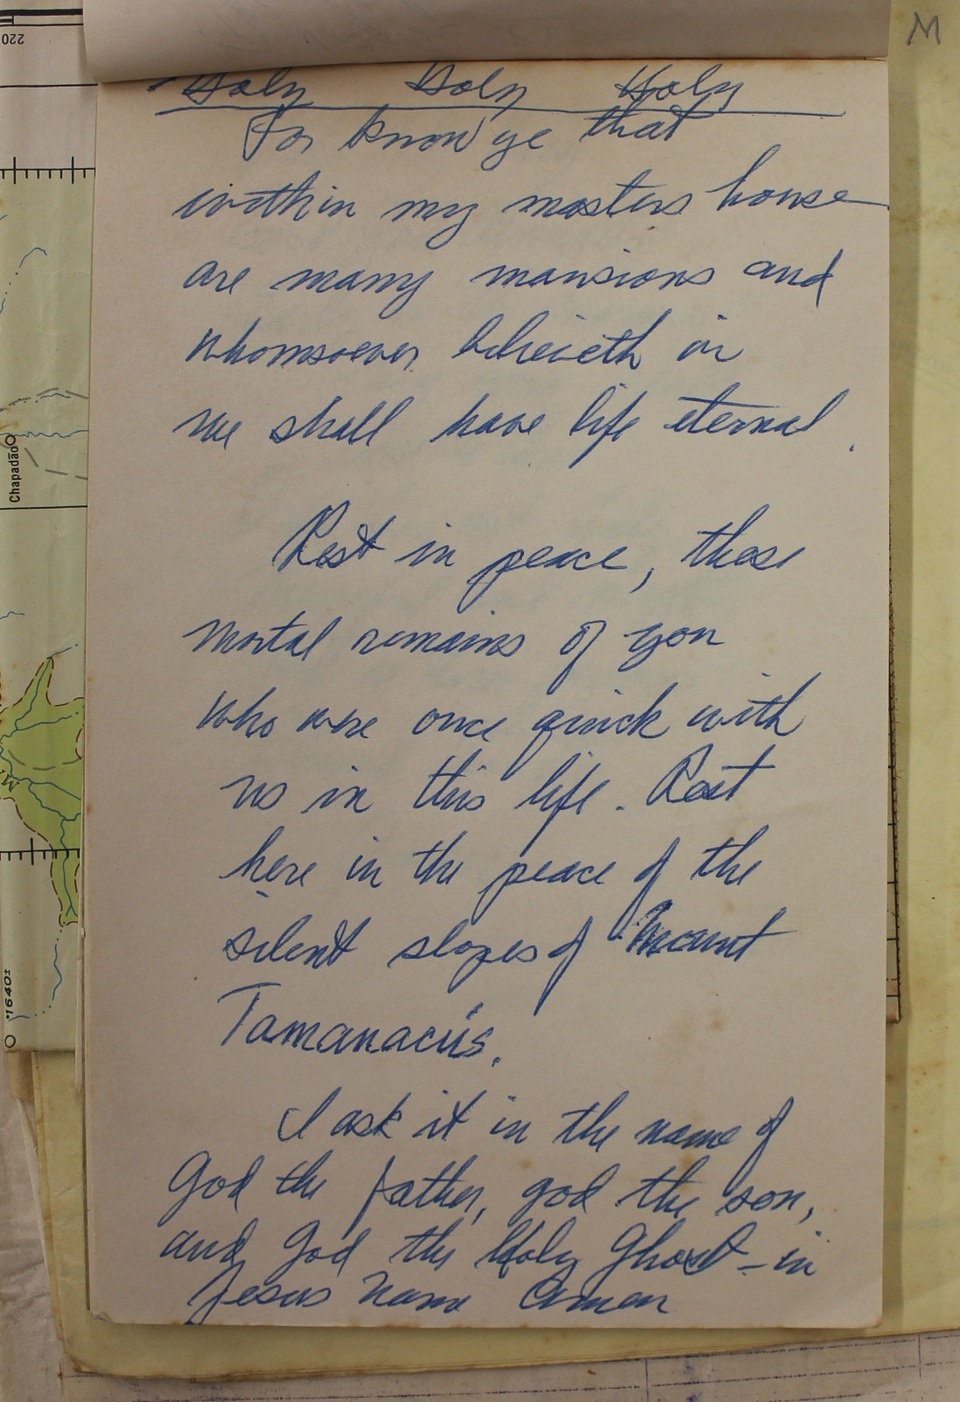 M
220
Holy Holy Holy
For know ye that
within my masters house
are many mansions and
whomsoever believeth in
me shall have life eternal.
Chapadão
Rest in peace, these
mortal remains of you
who were once quick with
us in this life. Rest
here in the peace of the
silent slopes of Mount
Tamanacus.
1640±
I ask it in the name of
God the father, god the son,
and god the Holy Ghost - in
Jesus name Amen